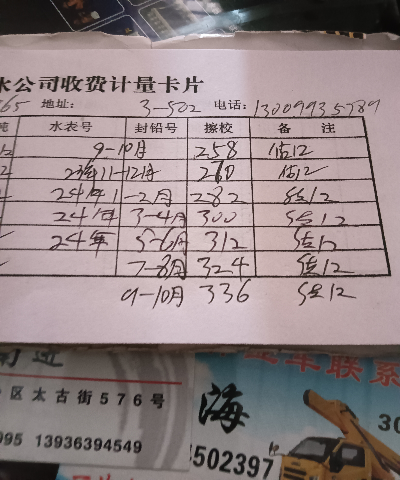 水公司收费计量卡片
65 地址: 3-502 电话: 13009935789
吨 水表号 封铅号 擦校 备 注
9-10月 258 估12
23年11-12月 260 估12
24年1-2月 282 12
24年 3-4月 300 估12
24年 5-6月 312 估12
7-8月 324 估12
9-10月 336 估12
区太古街576号
095 13936394549
海
4502397
车联系
30